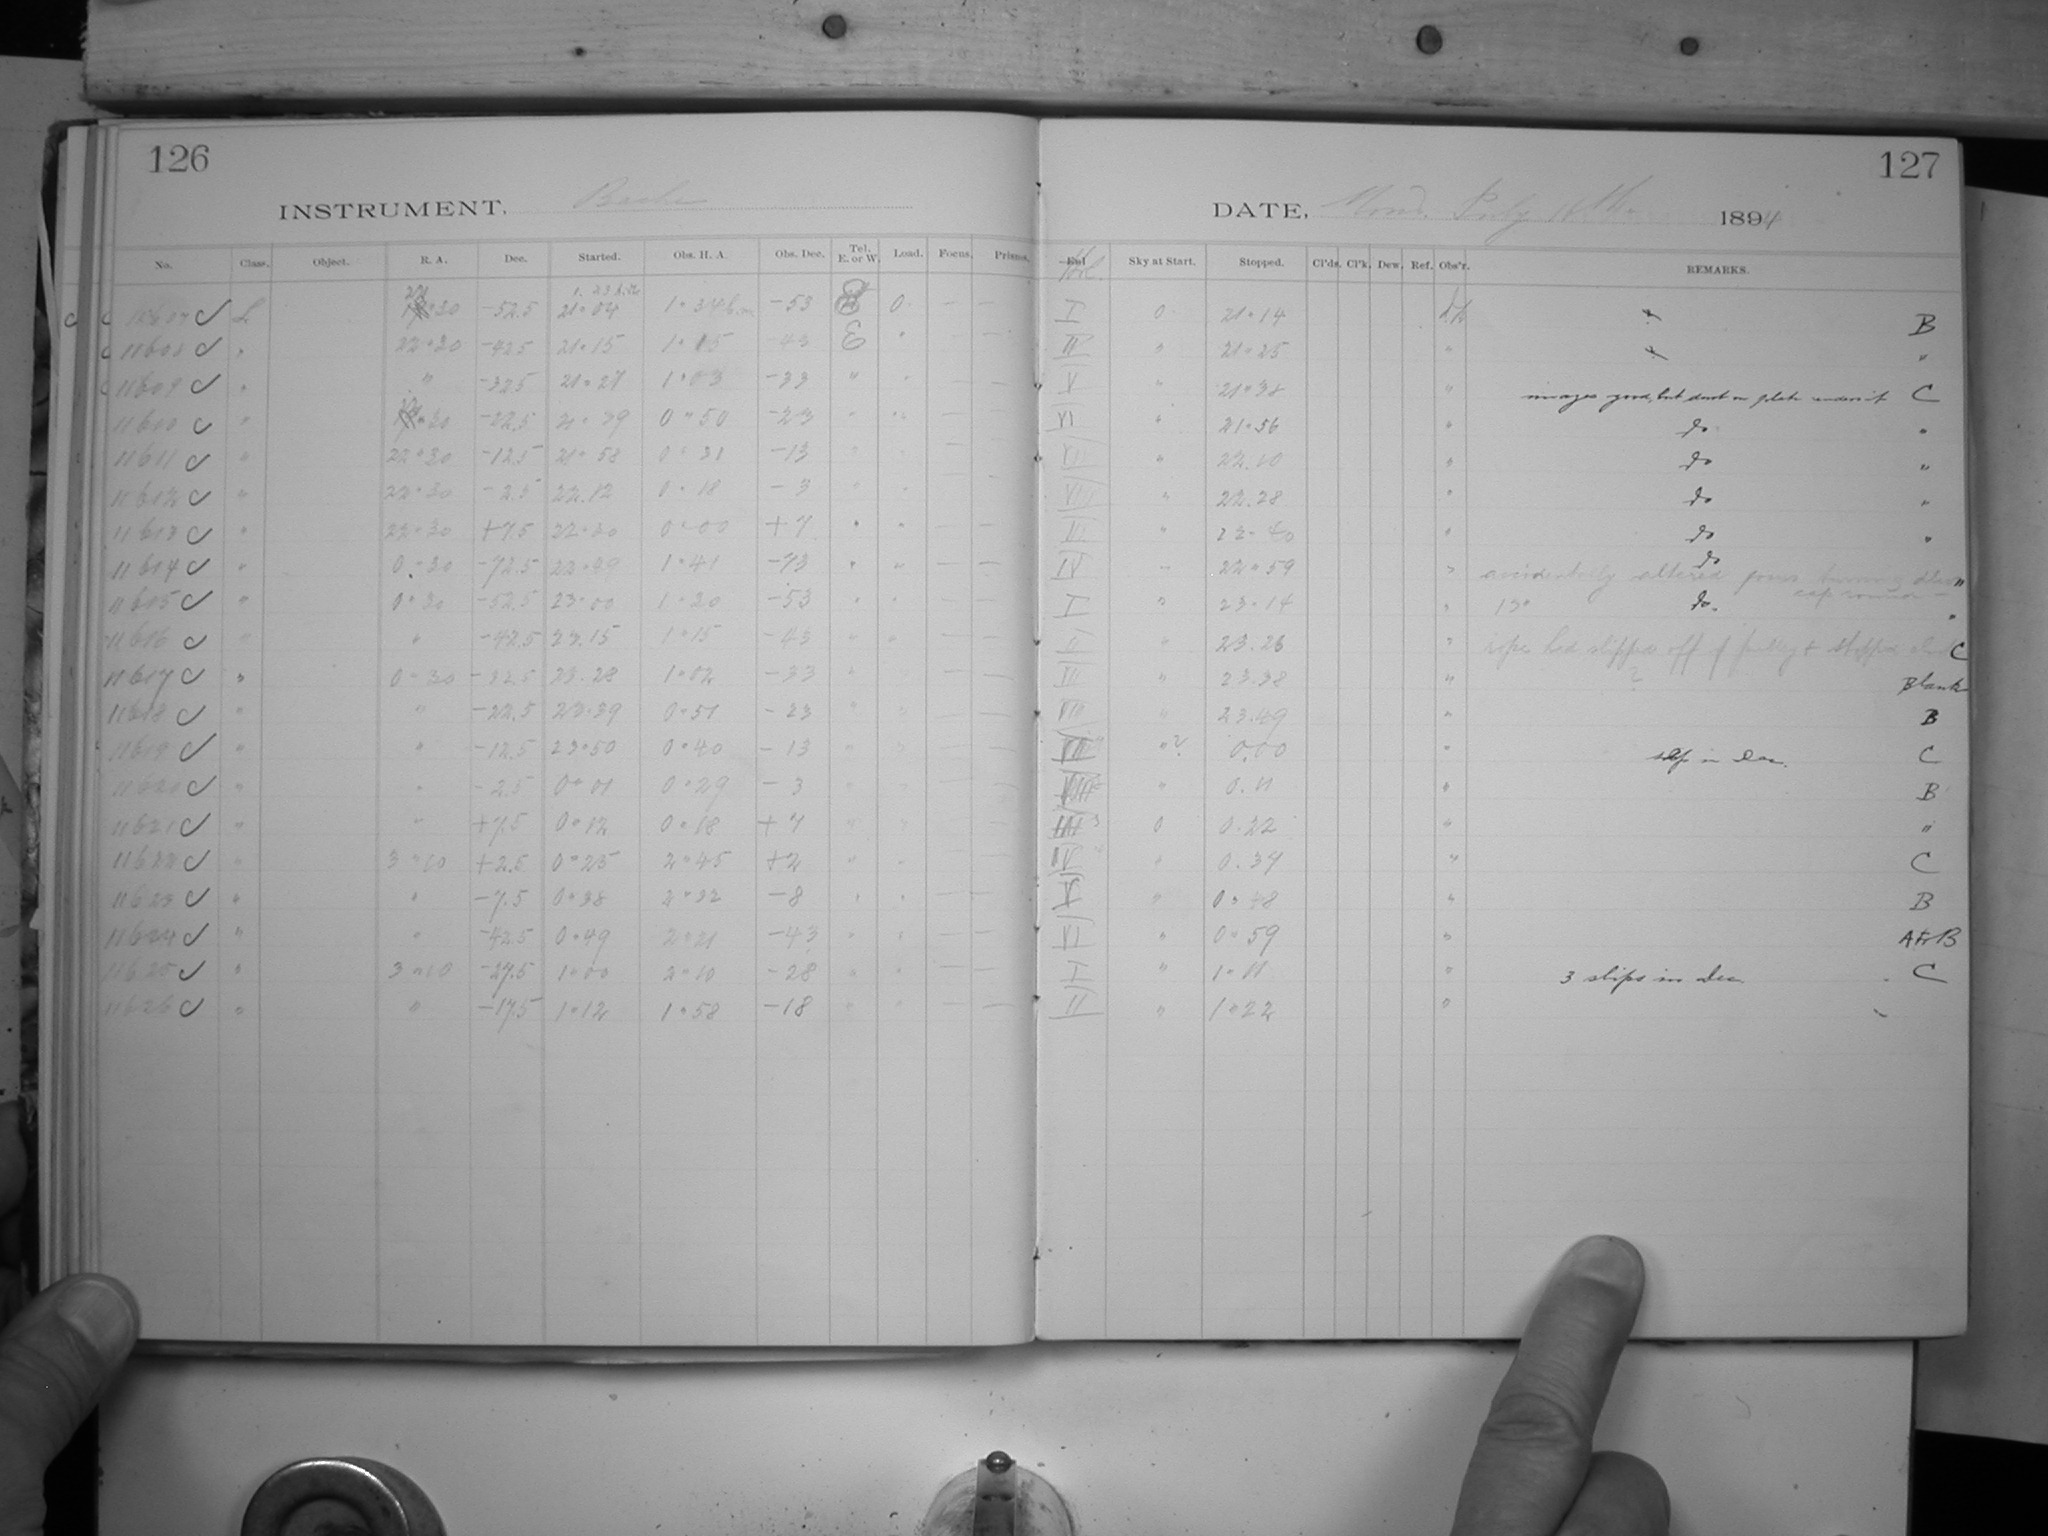 126
127
INSTRUMENT, Bache
DATE, Mond. July 16th. 1894
No. Class. Object. R. A. Dec. Started. Obs. H. A. Obs. Dec. Tel. E. or W. Load. Focus. Prisms. Sky at Start. Stopped. Cl'ds. Cl'k. Dew. Ref. Obs'r. REMARKS.
L 22 30 -52.5 21 04 -53 0 I 0 21 14 B
11608 " 22 30 -42.5 21 15 1 15 -43 E " II " 21 25 " "
11609 " " -32.5 21 27 1 03 -33 " " V " 21 38 " images good, but dust on plate C
11610 " 30 -22.5 21 39 0 50 -23 " " VI " 21.56 " do "
11611 " 22 30 -12.5 21 58 0 31 -13 " " VII " 22.10 " do "
11612 " 22 30 -2.5 22.12 0 18 -3 " " VIII " 22.28 " do "
11613 " 22 30 +7.5 22 30 0 00 +7 " " III " 22.40 " do "
11614 " 0 30 -72.5 22 49 1 41 -73 " " IV " 22 59 " do
accidentally altered "
" 0 30 -52.5 23 00 1 20 -53 " " I " 23 14 " 13° do. "
11616 " " -42.5 23.15 1 15 -43 " " II " 23.26 " rope had slipped off of pulley & C
11617 " 0 30 -32.5 23.28 1 02 -33 " " III " 23.38 " ? Blank
11618 " " -22.5 23 39 0 51 -23 " " VII " 23.49 " B
11619 " " -12.5 23 50 0 40 -13 " " "? 0.00 " slip in Dec. C
11620 " " -2.5 0 01 0 29 -3 " " " 0.11 " B
11621 " " +7.5 0 12 0 18 +7 " " 0 0.22 " "
11622 " 3 10 +2.5 0 25 2 45 +2 " " IV " 0.37 " C
11623 " " -7.5 0 38 2 32 -8 " " V " 0 48 " B
11624 " " -42.5 0 49 2 21 -43 " " VI " 0 59 " B
11625 " 3 10 -27.5 1 00 2 10 -28 " " I " 1 11 " 3 slips in Dec. C
11626 " " -17.5 1 12 1 58 -18 " " II " 1 22 "